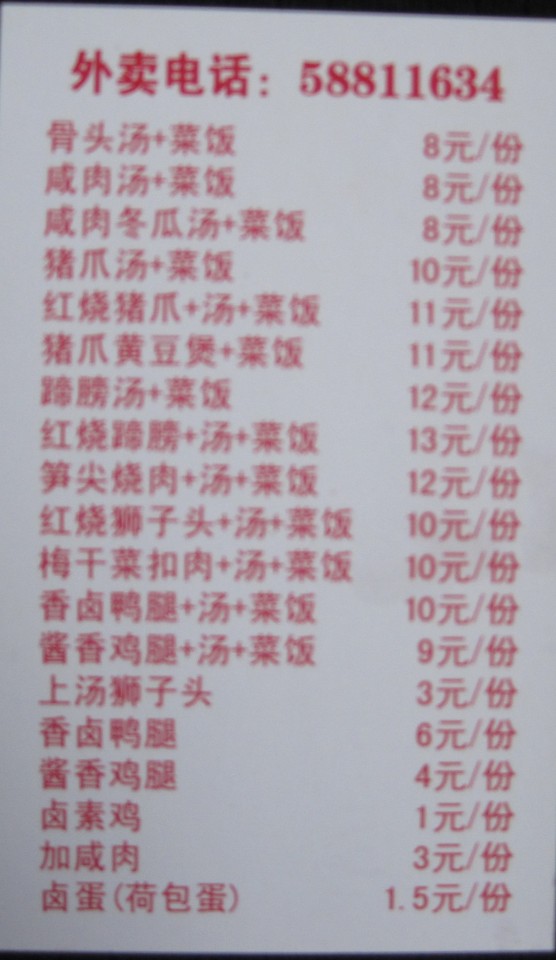 外卖电话：58811634
骨头汤+菜饭 8元/份
咸肉汤+菜饭 8元/份
咸肉冬瓜汤+菜饭 8元/份
猪爪汤+菜饭 10元/份
红烧猪爪+汤+菜饭 11元/份
猪爪黄豆煲+菜饭 11元/份
蹄膀汤+菜饭 12元/份
红烧蹄膀+汤+菜饭 13元/份
笋尖烧肉+汤+菜饭 12元/份
红烧狮子头+汤+菜饭 10元/份
梅干菜扣肉+汤+菜饭 10元/份
香卤鸭腿+汤+菜饭 10元/份
酱香鸡腿+汤+菜饭 9元/份
上汤狮子头 3元/份
香卤鸭腿 6元/份
酱香鸡腿 4元/份
卤素鸡 1元/份
加咸肉 3元/份
卤蛋(荷包蛋) 1.5元/份